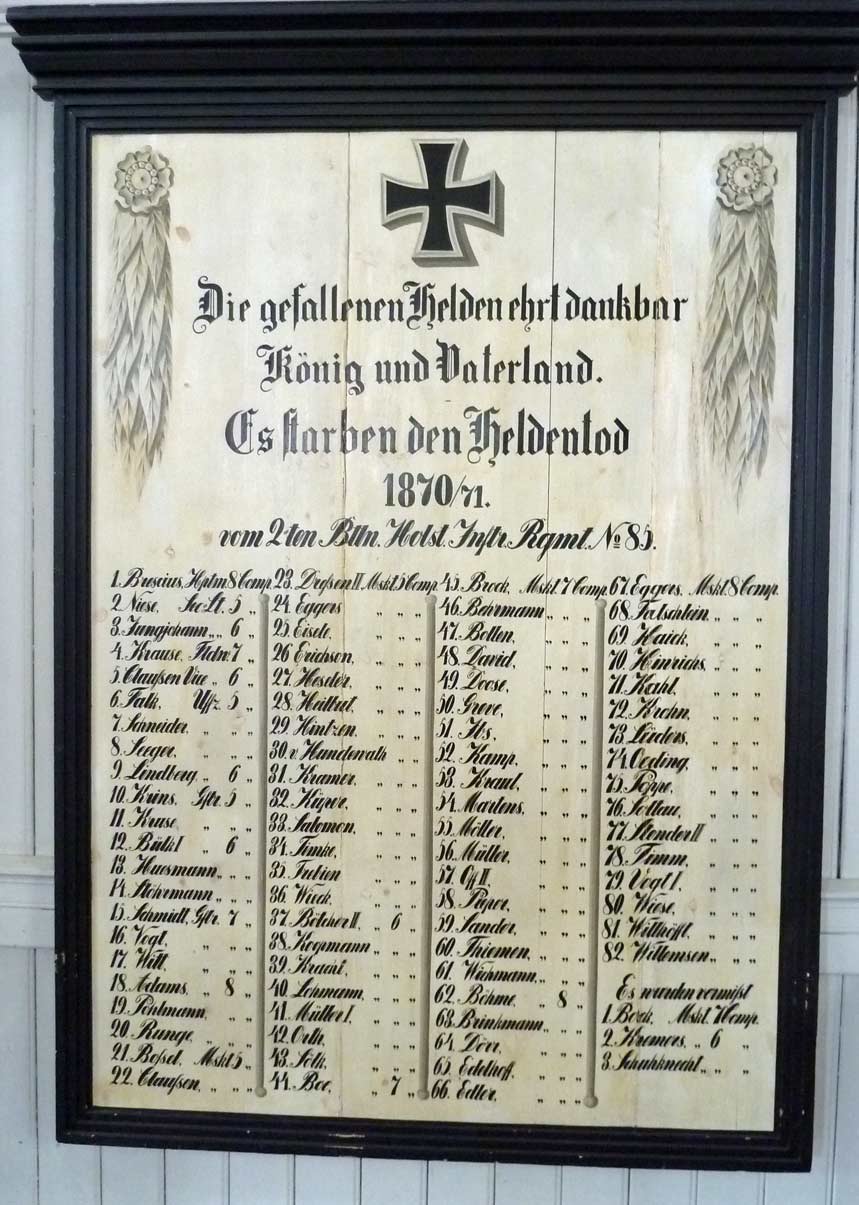 Die gefallenen Helden ehrt dankbar
König und Vaterland.
Es starben den Heldentod
1870/71.
vom 2ten Btln. Holst. Inftr. Rgmt. No 85.
1. Brescius, Hptm 8 Comp.
2. Niese, Sec: Lt. 5 „
3. Jungjohann „ „ 6 „
4. Krause, Fldw. 7 „
5. Claußen Vice „ 6 „
6. Falk, Uffz. 5 „
7. Schneider, „ „ „
8. Seeger, „ „ „
9. Lindberg „ 6 „
10. Krins, Gftr. 5 „
11. Kruse „ „ „
12. Bülk I „ 6 „
13. Huesmann „ „ „
14. Stöhrmann „ „ „
15. Schmidt, Gftr. 7 „
16. Vogt, „ „ „
17. Witt, „ „ „
18. Adams, „ 8 „
19. Pohlmann, „ „ „
20. Runge, „ „ „
21. Boßel, Mskt. 5 „
22. Claußen, „ „ „
23. Dreßen II Mskt. 5 Comp.
24. Eggers „ „ „
25. Eisele, „ „ „
26. Erichson, „ „ „
27. Hesder, „ „ „
28. Heitbut, „ „ „
29. Hintzen, „ „ „
30. v. Hunderwath „ „ „
31. Kramer, „ „ „
32. Küper, „ „ „
33. Salomon, „ „ „
34. Timke, „ „ „
35. „ „ „
36. Wieck, „ „ „
37. Bötcher II, „ 6 „
38. Koopmann „ „ „
39. Kracht, „ „ „
40. Lohmann, „ „ „
41. Müller I, „ „ „
42. Orth, „ „ „
43. Söth, „ „ „
44. Boe, „ 7 „
45. Brock, Mskt. 7 Comp.
46. Bohrmann „ „ „
47. Bolten, „ „ „
48. David, „ „ „
49. Doose, „ „ „
50. Greve, „ „ „
51. Its, „ „ „
52. Kamp, „ „ „
53. Kraut, „ „ „
54. Martens, „ „ „
55. Möller, „ „ „
56. Müller, „ „ „
57. Off II, „ „ „
58. Piper, „ „ „
59. Sander, „ „ „
60. Thiemen, „ „ „
61. Wichmann, „ „ „
62. Böhme, „ 8 „
63. Brinkmann „ „ „
64. Dörr, „ „ „
65. Edelhoff, „ „ „
66. Edler, „ „ „
67. Eggers, Mskt. 8 Comp.
68. „ „ „
69. Haick, „ „ „
70. Hinrichs, „ „ „
71. Kahl, „ „ „
72. Krohn, „ „ „
73. Lüders, „ „ „
74. Oeding, „ „ „
75. Poppe, „ „ „
76. Soltau, „ „ „
77. Stender II „ „ „
78. Timm, „ „ „
79. Vogt I, „ „ „
80. Wiese, „ „ „
81. Witthöfft, „ „ „
82. Willemsen „ „ „
Es wurden vermißt
1. Bock, Mskt. 7 Comp.
2. Kremers, „ 6 „
3. Schuhknecht „ „ „